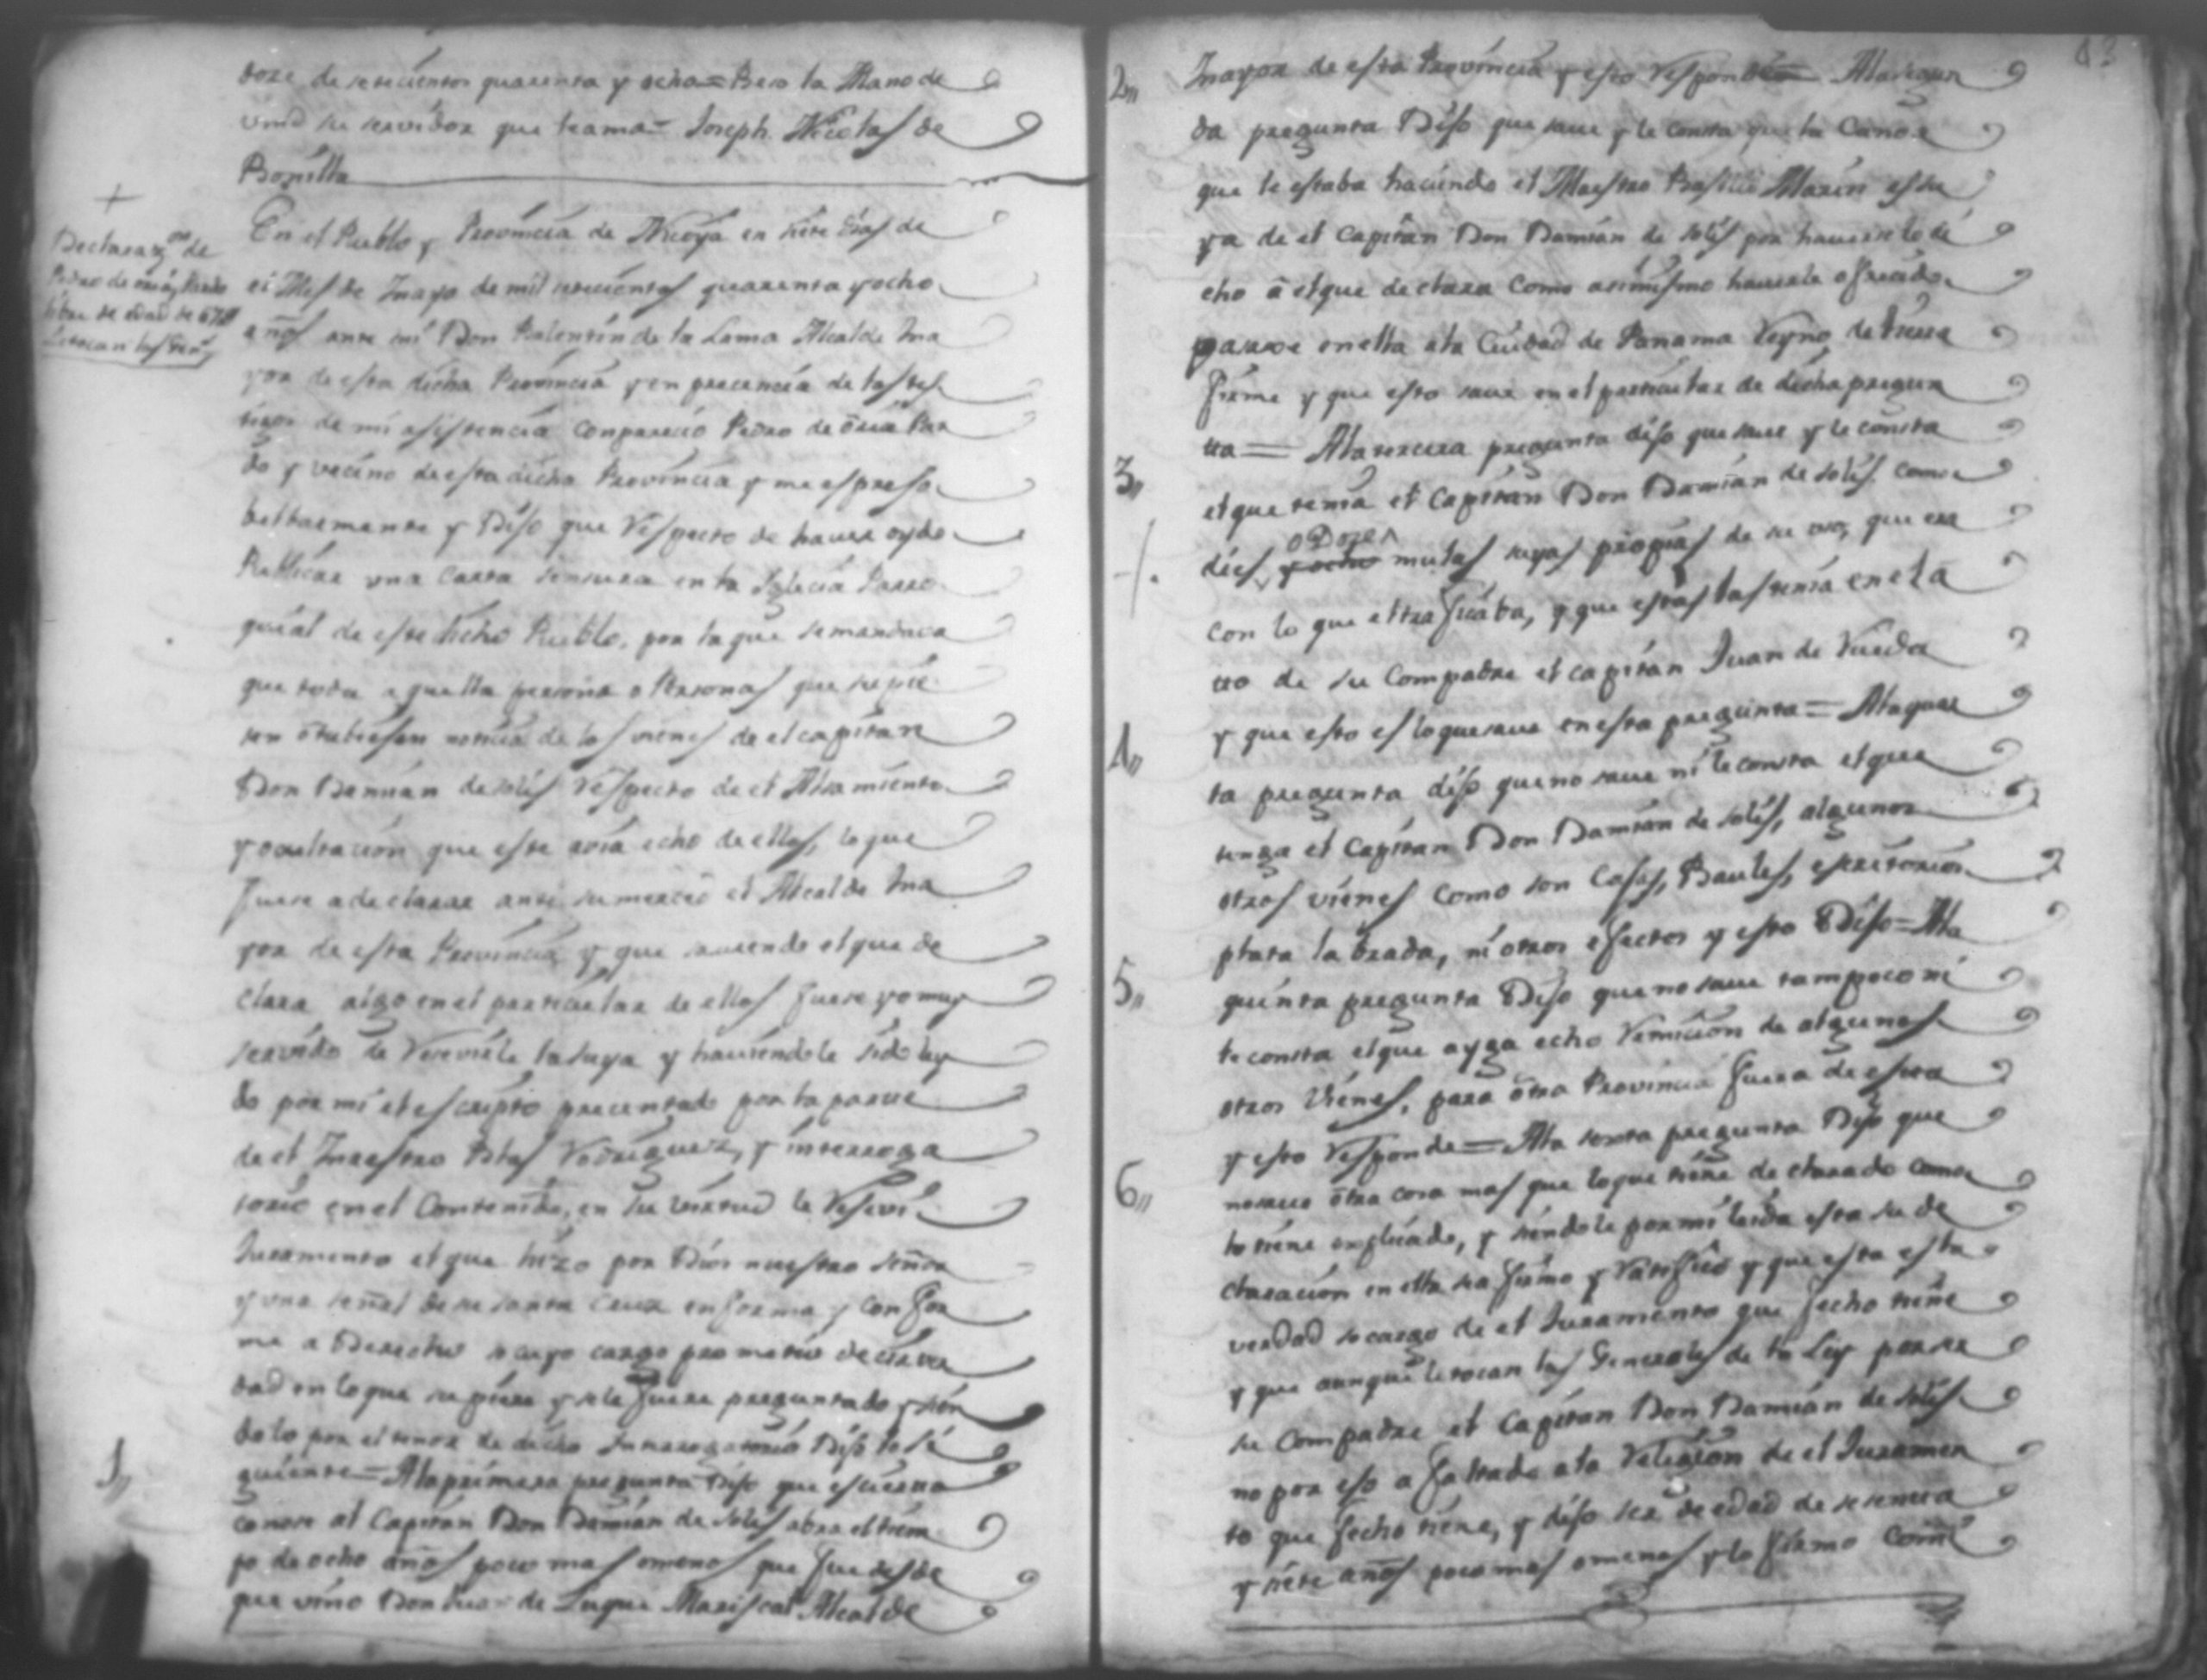 doze de setecientos quarenta y ocho = Beso la Mano de
vmd su servidor que le ama = Joseph Nicolas de
Bonilla
+
Declaraz.on de
Pedro de Pardo
libre de edad de 67 a.s
Letocan las Gen.s
En el Pueblo y Provincia de Nicoya en siete dias de
el Mes de Mayo de mil setecientos quarenta y ocho
años ante mi Don Balentin de la Lama Alcalde Ma
yor de esta dicha Provincia y en precencia de los tes
tigos de mi asistencia conparecio Pedro de Par
do y vecino de esta dicha Provincia y me espreso
belbarmente y Dijo que Respecto de haver oydo
Publicar una carta sensura en la Yglecia Parro
quial de este dicho Pueblo, por la que semandava
que toda aquella persona o Personas que supie
sen ôtubiesen noticia de los vienes de el capitan
Don Damian de solis Respecto de el Alsamiento
y ocultacion que este avia echo de ellos, lo que
fuese a declarar ante su merced el Alcalde Ma
yor de esta Provincia y que saviendo el que de
clara algo en el particular de ellos fuese yo muy
servido de Recivirle la suya y haviendole sido ley
do por mi el escripto precentado por la parte
de el Maestro Blas Rodriguez, y interroga
torio en el Contenido, en su virtud le Resevi
Juramento el que hizo por Dios nuestro señor
y una señal de su santa Cruz en forma y confor
me a Derecho so cuyo cargo prometio decir ver
dad en lo que supiere y se le fuere preguntado y sien
dolo por el tenor de dicho Interrogatorio Dijo lo si
1,, guiente = Ala primera pregunta Dijo que es cierto
conose al Capitan Don Damian de Solis abra el tiem
po de ocho años poco mas o menos que fue desde
que vino Don de Luque Mariscal Alcalde
43
Mayor de esta Provincia y esto Responde = Ala segun
2,, da pregunta Dijo que save y le consta que la Canoa
que le estaba haciendo el Maestro Basilio Marin es su
ya de el Capitan Don Damian de solis por haverselo di
cho â el que declara como asimismo haverle ofrecido
pasaxe en ella ala Ciudad de Panama Reyno de tierra
firme y que esto save en el particular de dicha pregun
3,, ta = Ala tercera pregunta dijo que save y le consta
el que tenia el Capitan Don Damian de solis como
o Doze
dies y ocho mulas suyas propias de su uso, que era
con lo que el traficaba, y que estas las tenia en el a
to de su Compadre el capitan Juan de Rueda
y que esto es lo que save en esta pregunta = Ala quar
4,, ta pregunta dijo que no save ni le consta el que
tenga el Capitan Don Damian de solis, algunos
otros vienes como son Casas, Baules, escritorios
plata labrada, ni otros efectos y esto Dijo = Ala
5,, quinta pregunta Dijo que no save tampoco ni
le consta el que ayga echo Remicion de algunos
otros Vienes, para ôtra Provincia fuera de esta
y esto Responde = Ala sexta pregunta Dijo que
6,, no save ôtra cosa mas que lo que tiene declarado como
lo tiene explicado, y siendole por mi leida esta su de
claracion en ella se afirmo y Ratifico y que esta es la
verdad so cargo de el Juramento que fecho tiene
y que aunque le tocan las Generales de la Ley por ser
su Compadre el Capitan Don Damian de solis
no por eso a faltado ala Religion de el Juramen
to que fecho tiene, y dijo ser de edad de sesenta
y siete años poco mas o menos y lo firmo Conmi